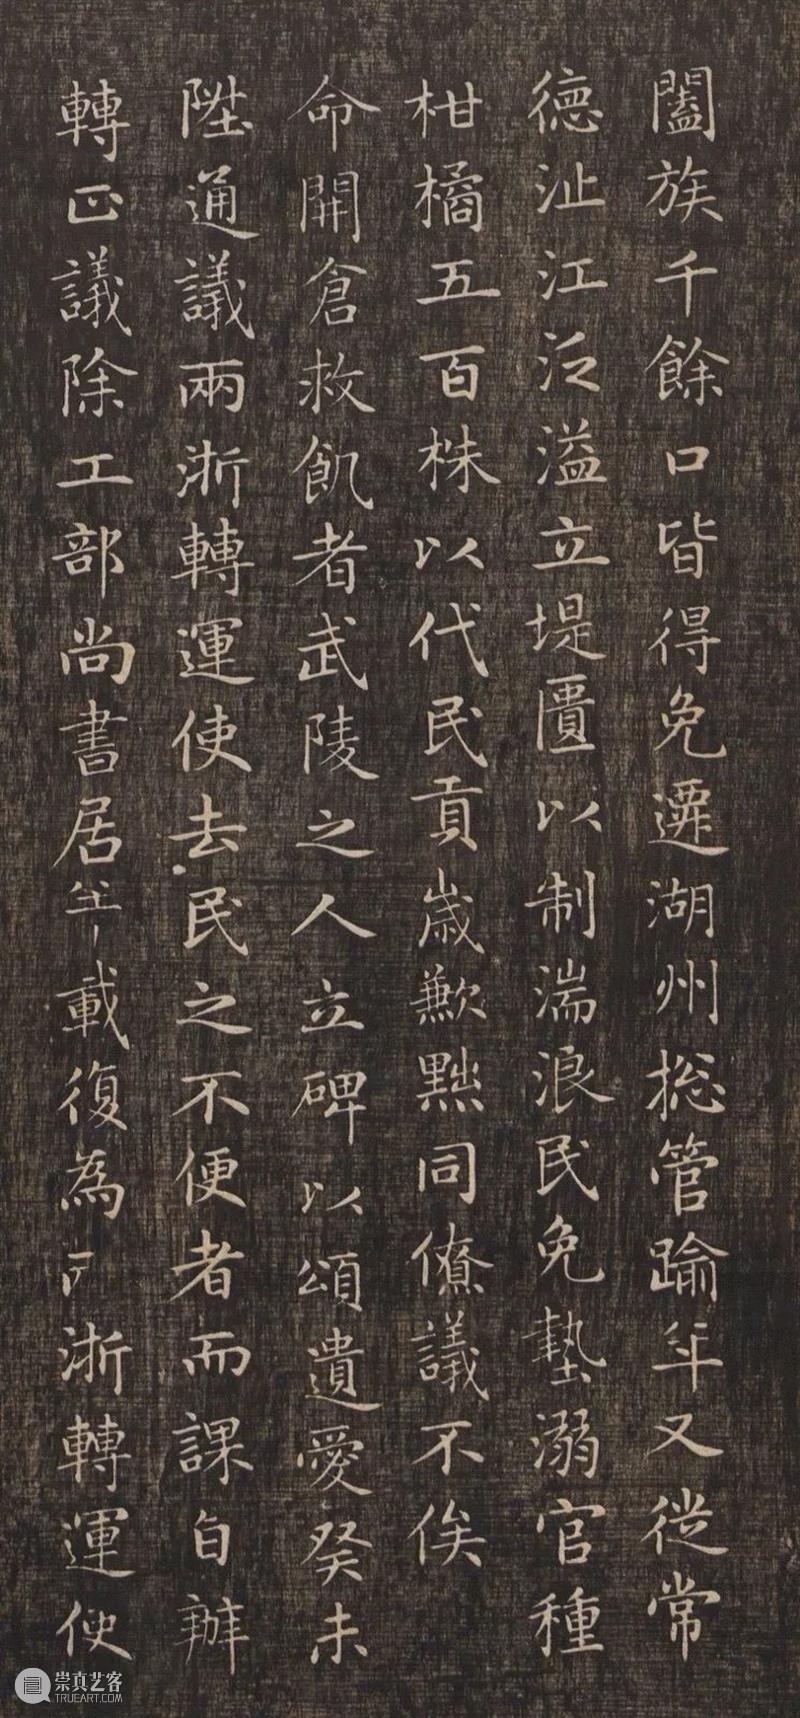 闔族千餘口皆得免遷湖州総管踰年又從常
德沚江泛溢立堤匽以制湍浪民免墊溺官種
柑橘五百株以代民貢歲歉黙同僚議不俟
命開倉救飢者武陵之人立碑以頌遺愛癸未
陞通議兩浙轉運使去民之不便者而課自辦
轉正議除工部尚書居半載復為戶浙轉運使
崇真艺客
TRUEART.COM